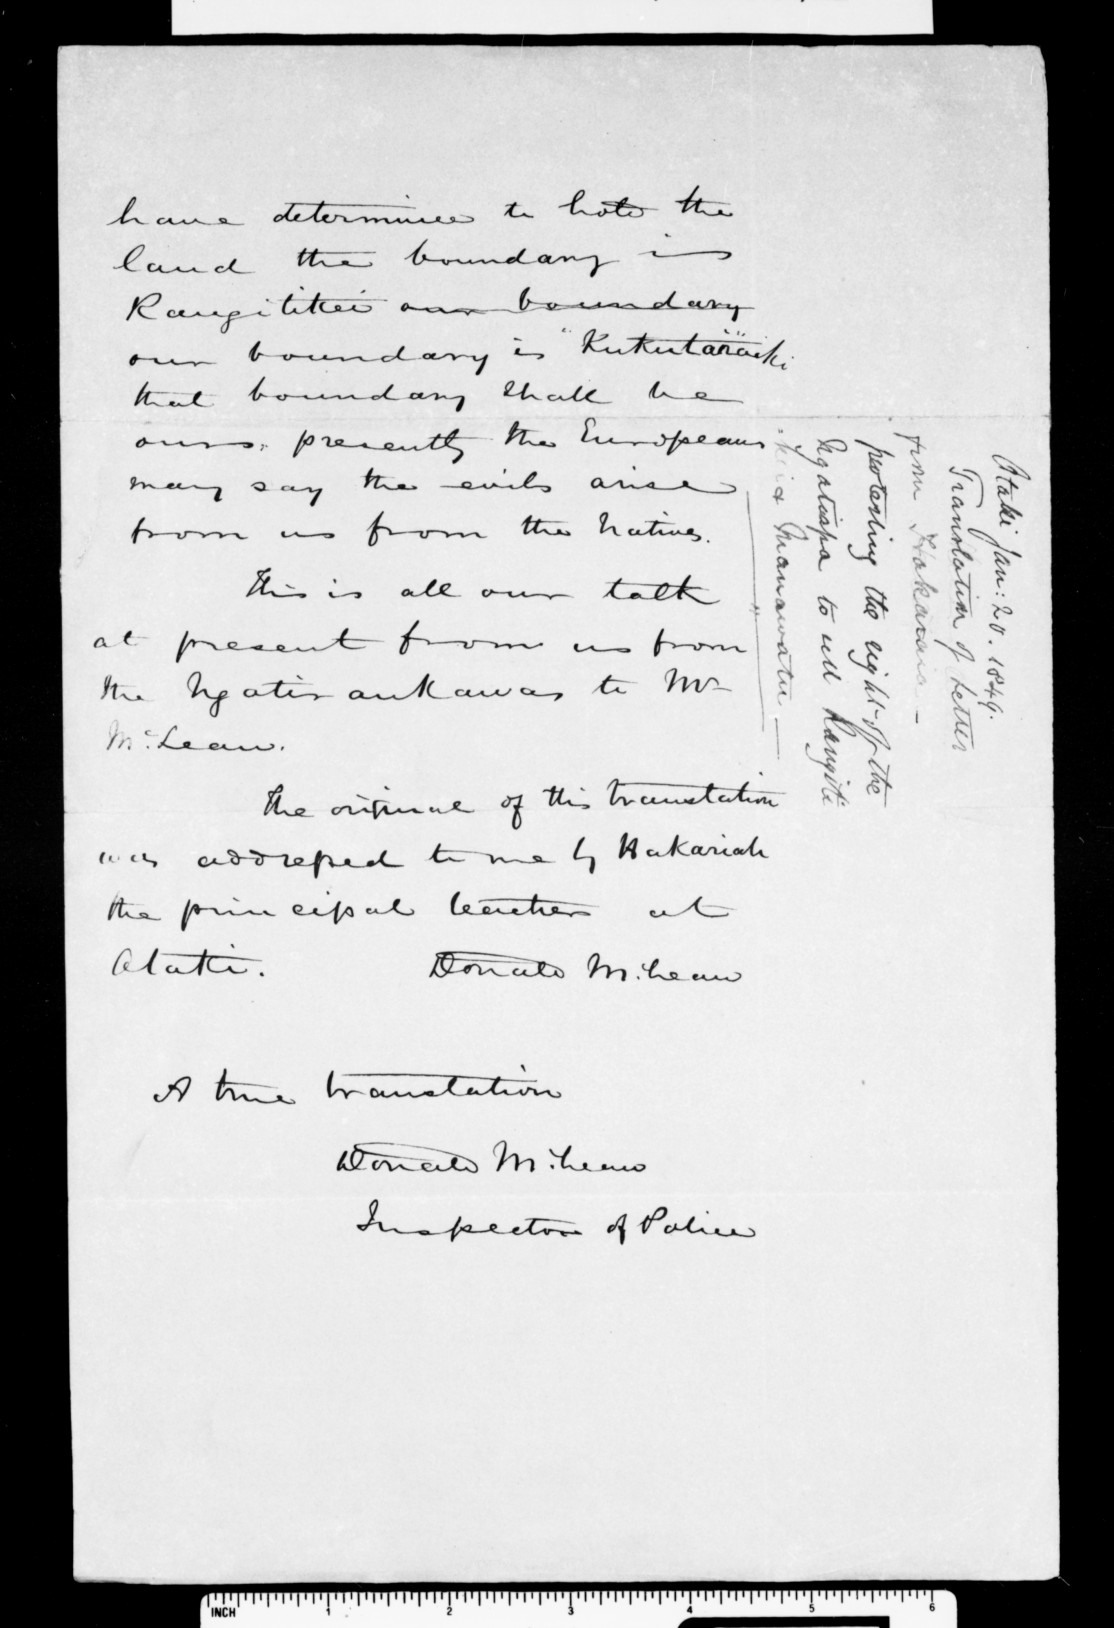 have determined to hold the
land the boundary is
Rangitikei our boundary
our boundary is "Kukutaraiki"
that boundary shall be
ours, presently the Europeans
may say the evils arise
from us from the Natives.
This is all our talk
at present from us from
the Ngatiraukawas to Mr
McLean.
The original of this translation
was addressed to me by Hakariah
the principal teacher at
Otaki. Donald McLean
A true translation
Donald McLean
Inspector of Police
Otaki Jan: 20. 1849.
Translation of Letter
from Hakaraia -
protesting the right of the
Ngatiapa to sell Rangiti
kei & Manawatu -
INCH 1 2 3 4 5 6